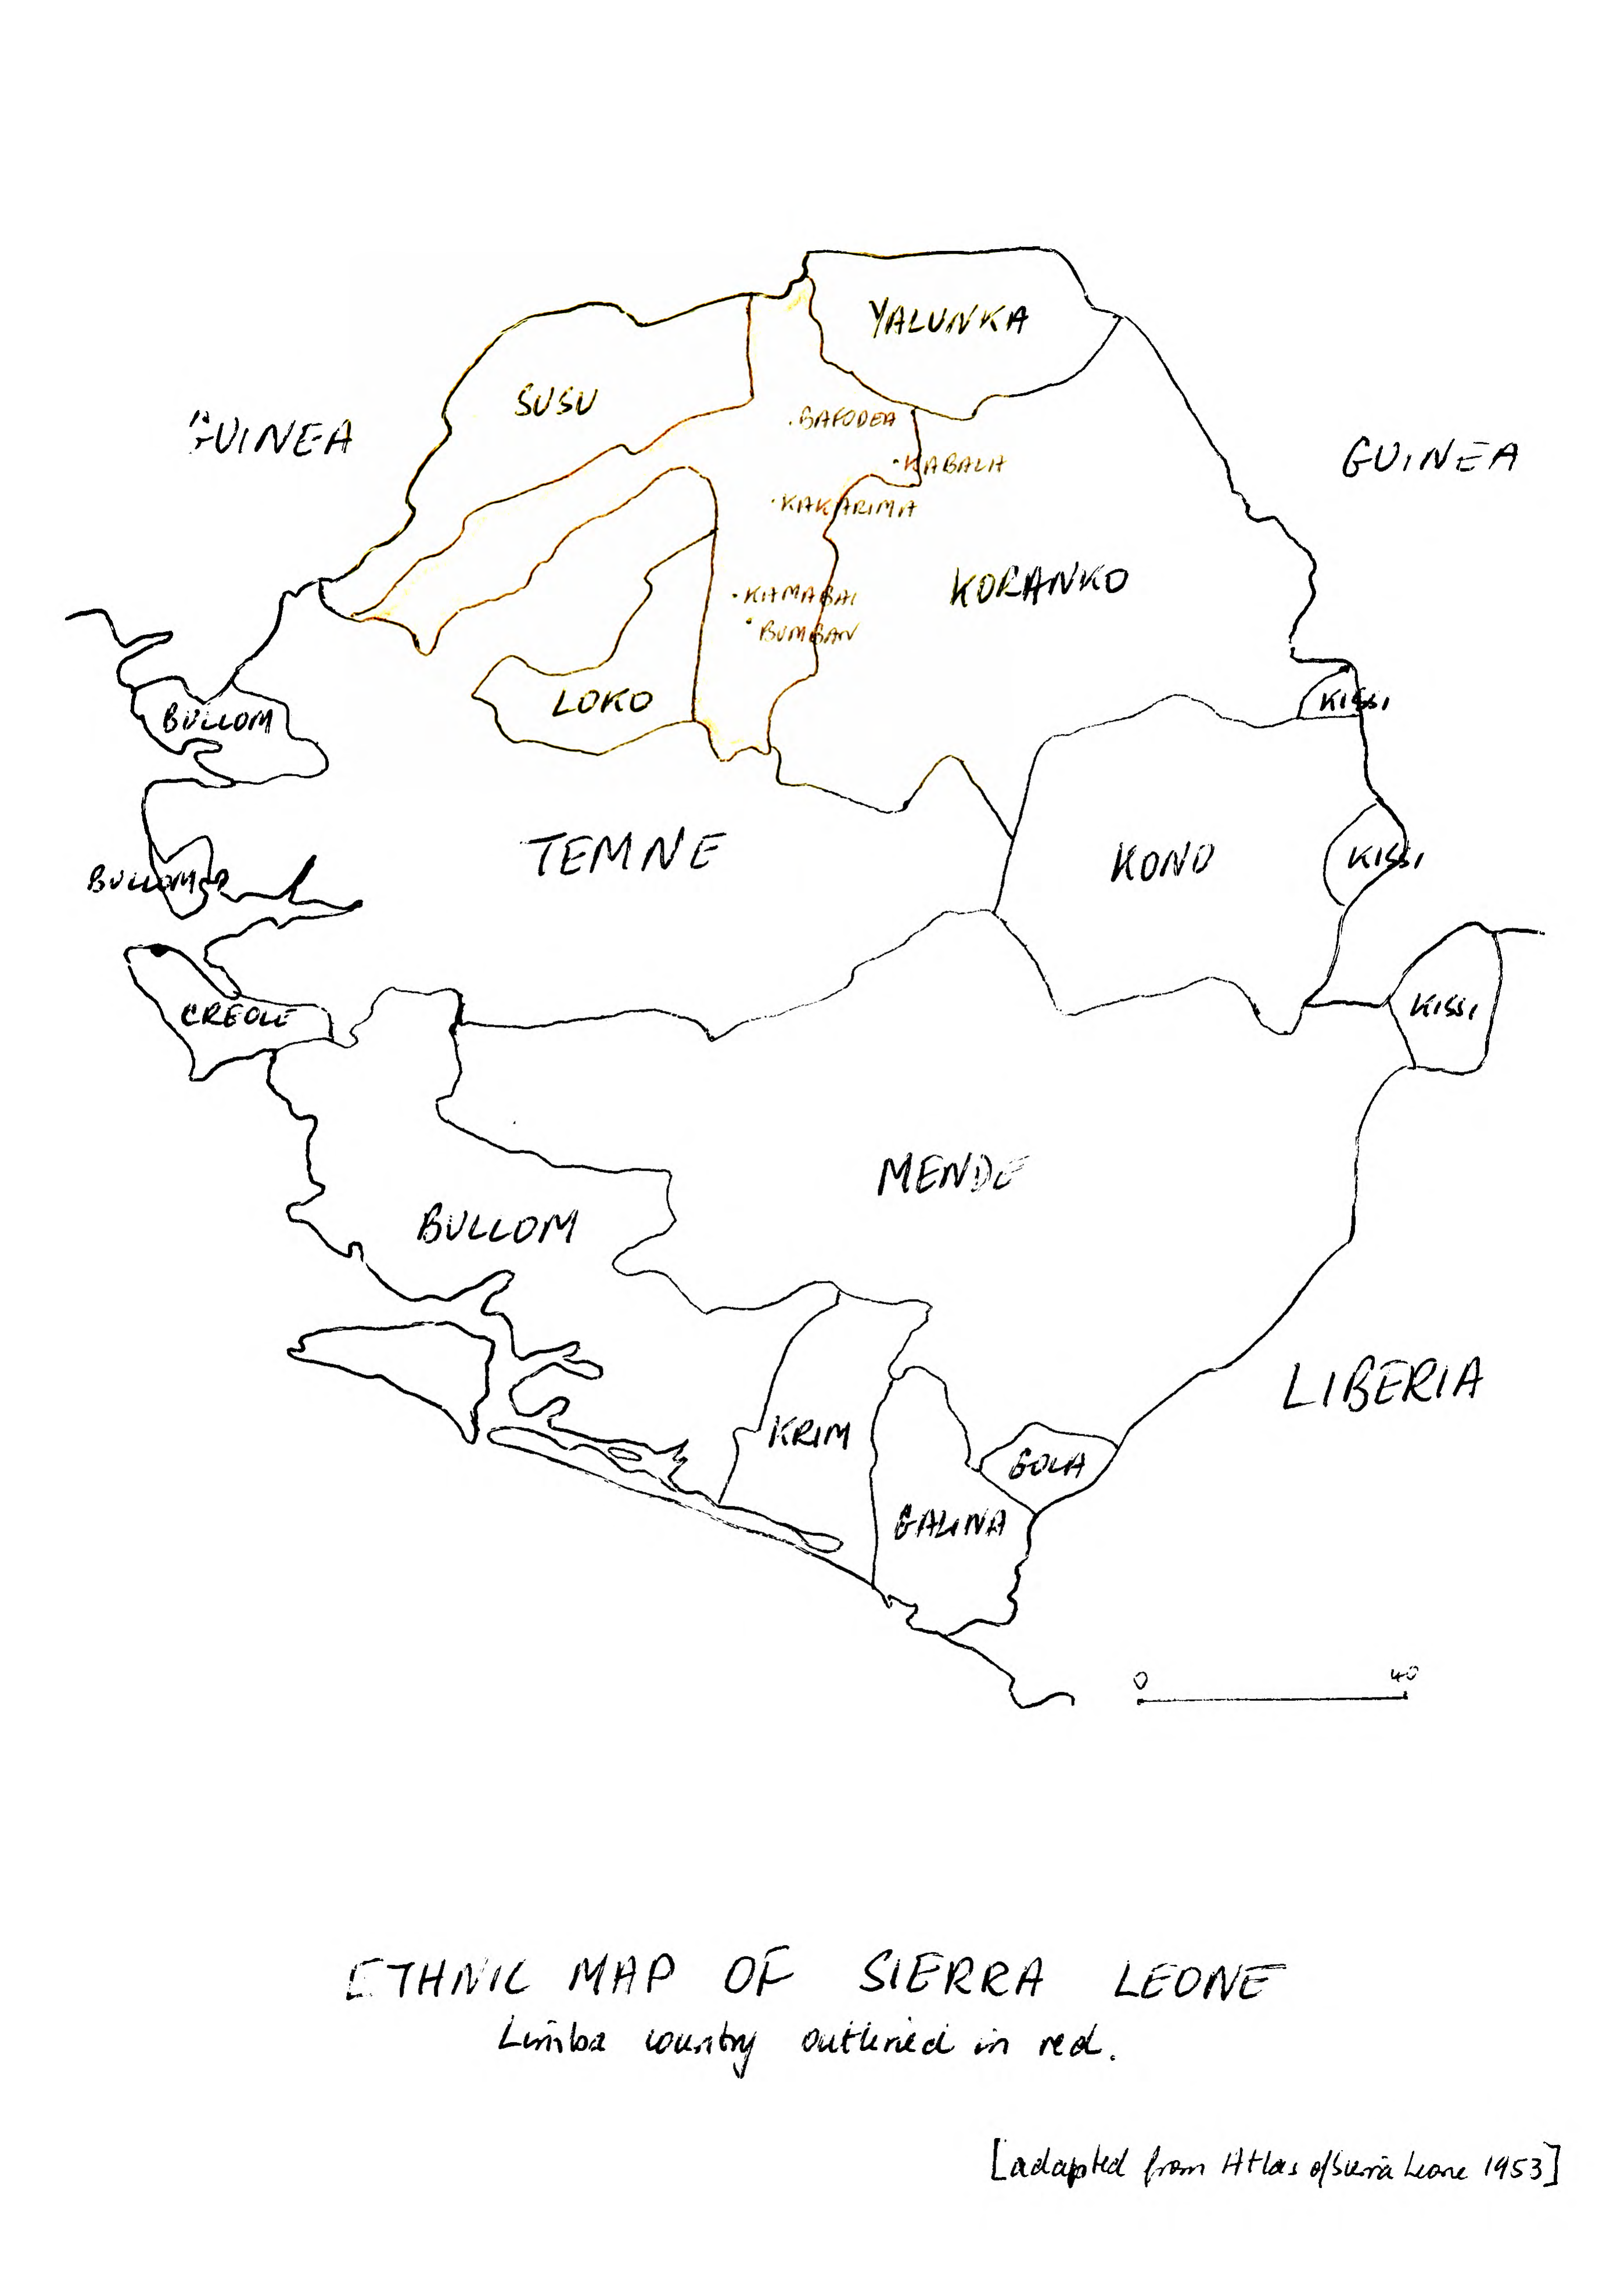 YALUNKA
SUSU
GUINEA
GUINEA
.BAFODEA
.KABALA
.KAKARIMA
KORANKO
.KAMABAI
.BUMBAN
LOKO
KISSI
BULLOM
TEMNE
KONO
KISSI
BULLOM
CREOLE
KISSI
MENDE
BULLOM
LIBERIA
KRIM
GOLA
GALINA
0 40
ETHNIC MAP OF SIERRA LEONE
Limba country outlined in red.
[adapted from Atlas of Sierra Leone 1953]